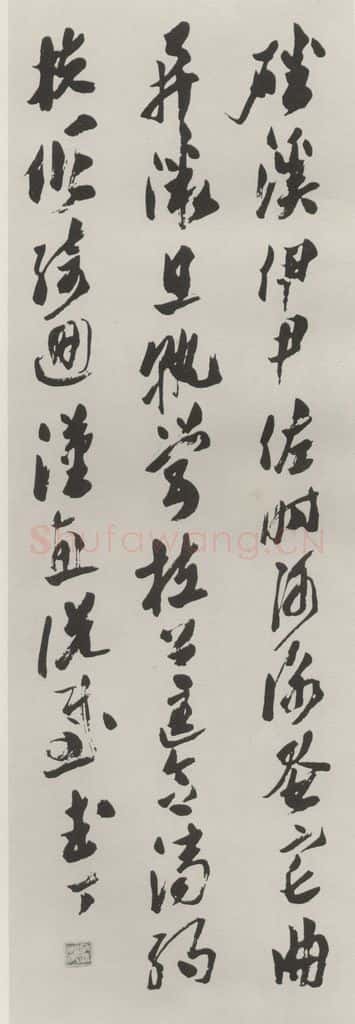 磻溪伊尹佐时阿衡奄宅曲
阜微旦孰營桓公匡合濟弱
扶傾綺迴漢惠說感武丁
Shufawang.CN